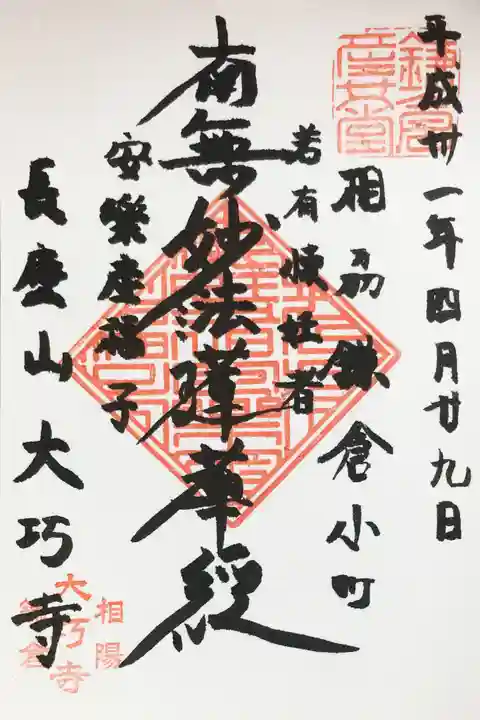 平成卅一年四月廿九日
鎌倉
産女堂
相州鎌倉小町
若有懐妊者
南無妙法蓮華経
安樂産福子
長慶山大巧寺
相陽
大巧寺
鎌倉